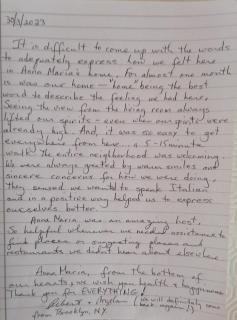 30/1/2023
It is difficult to come up with the words
to adequately express how we felt here
in Anna Maria's home. For almost one month
is was our home — "home" being the best
word to describe the feeling we had here.
Seeing the view from the living room always
lifted our spirits - even when our spirits were
already high. And, it was so easy to get
everywhere from here. a 5-15 minute
walk! The entire neighborhood was welcoming.
We were always greeted by warm smiles and
sincere concerns for how we were doing.
They sensed we wanted to speak Italian
and in a positive way helped us to express
ourselves better.
Anna Maria was an amazing host.
So helpful whenever we needed assistance to
find places or suggesting places and
restaurants we didn't know about elsewhere
Anna Maria, from the bottom of
our hearts, we wish you health & happiness.
Thank you for EVERYTHING!
Robert & (we will definitely come
back again!)
from Brooklyn, NY